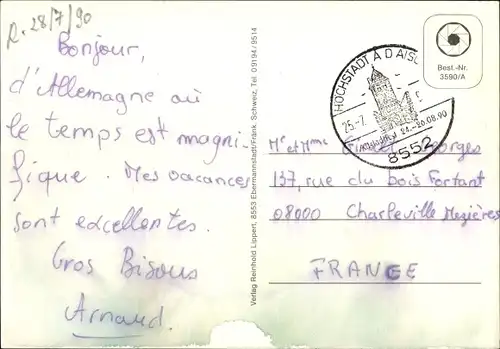 R. 28/7/90
Bonjour,
d'Allemagne où
le temps est magni-
fique. Mes vacances
sont excellentes.
Gros Bisous
Arnaud.
Verlag Reinhold Lippert, 8553 Ebermannstadt/Fränk. Schweiz, Tel. 09194/9514
HÖCHSTADT A D AISCH
25.-7.
24.-26.08.90
8552
Best.-Nr.
3590/A
Mr et Mme Georges
137, rue du bois Fortant
08000 Charleville Mezières
FRANCE